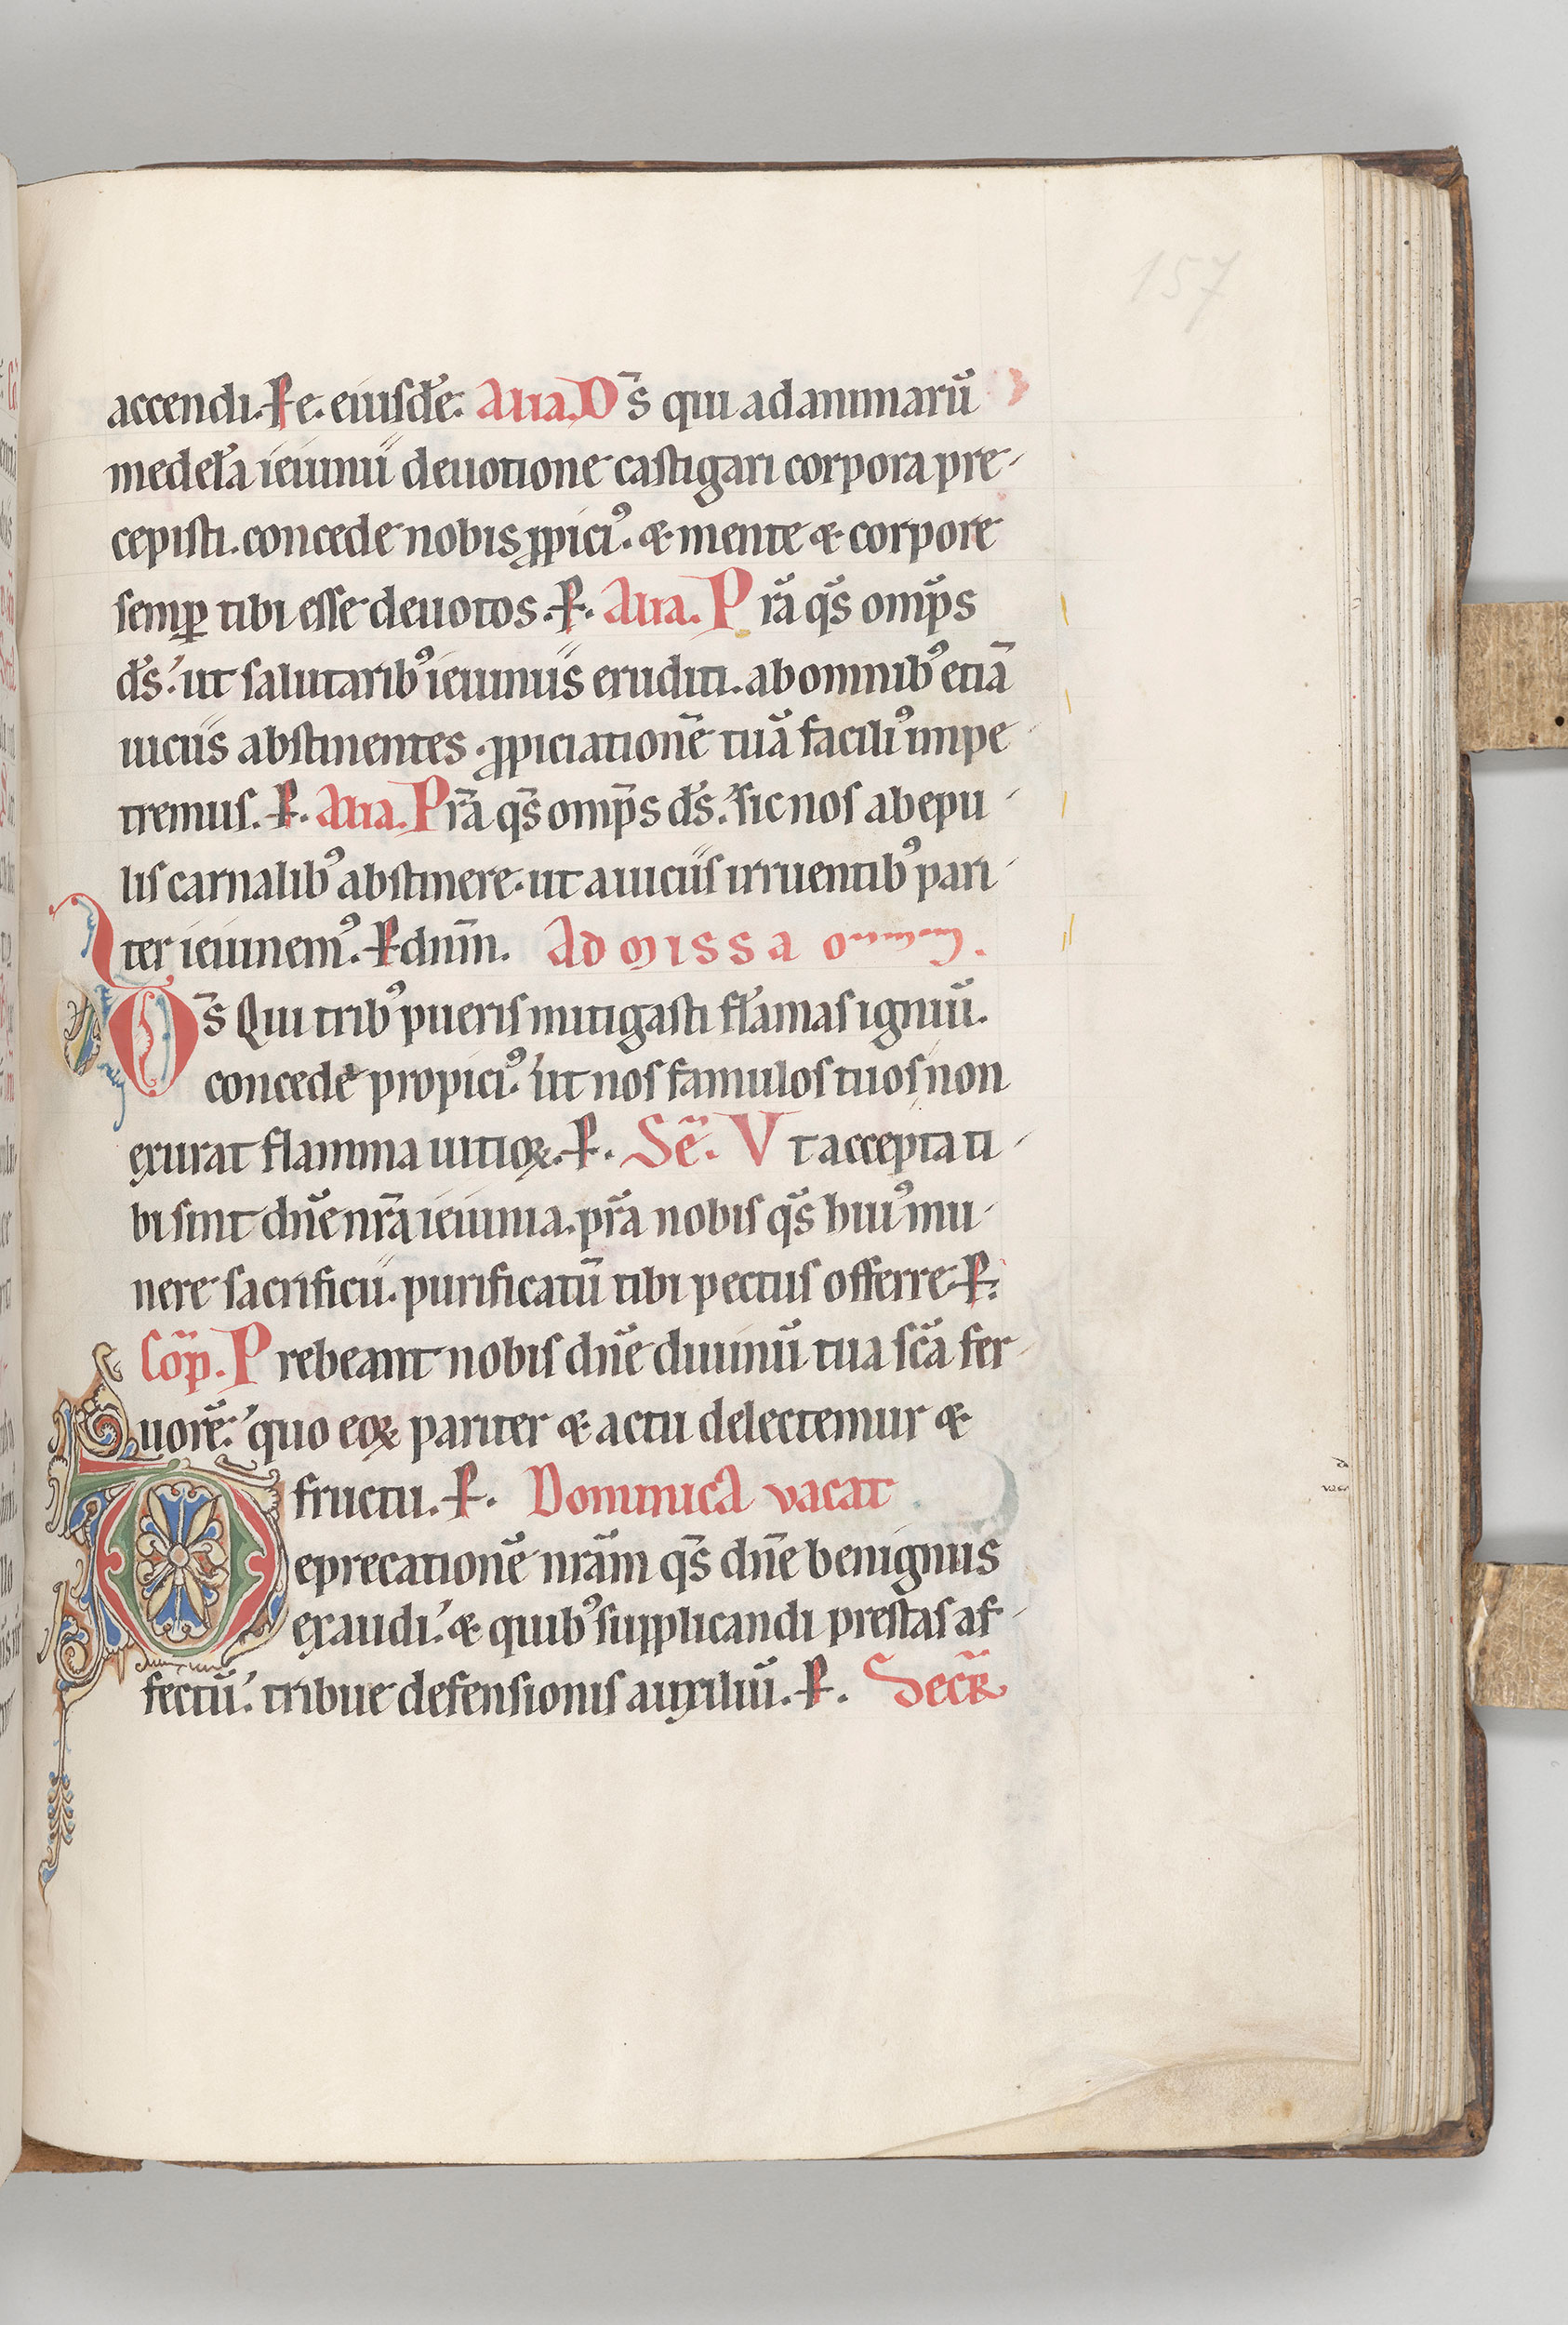 157
accendi. P. e. eiusdē. Alia. Ds̄ qui ad animarū
medelā ieiunii deuotione castigari corpora pre-
cepisti. concede nobis ꝓpiciꝰ. & mente & corpore
semꝑ tibi esse deuotos. P. Alia. Prā qs̄ omps̄
ds̄. ut salutaribꝰ ieiuniis eruditi. ab omnibꝰ etiā
uiciis abstinentes. ꝓpiciationē tuā faciliꝰ impe-
tremus. P. Alia. Prā qs̄ omps̄ ds̄. sic nos ab epu-
lis carnalibꝰ abstinere. ut a uiciis irruentibꝰ pari-
ter ieiunemꝰ. P dnm̄. Ad missā
Ds̄ Qui tribꝰ pueris mitigasti flāmas igniū.
concede propiciꝰ. ut nos famulos tuos non
exurat flamma uitioꝝ. P. Sē. Vt accepta ti-
bi sint dnē nrā ieiunia. prā nobis qs̄ huiꝰ mu-
nere sacrificii. purificatū tibi pectus offerre. P.
Cōp. Prebeant nobis dnē diuinū tua scā fer-
uorē. quo eoꝝ pariter & actu delectemur &
fructu. P. Dominica vacat
Deprecationē nrām qs̄ dnē benignus
exaudi. & quibꝰ supplicandi prestas af-
fectū. tribue defensionis auxiliū. P. Secr̄